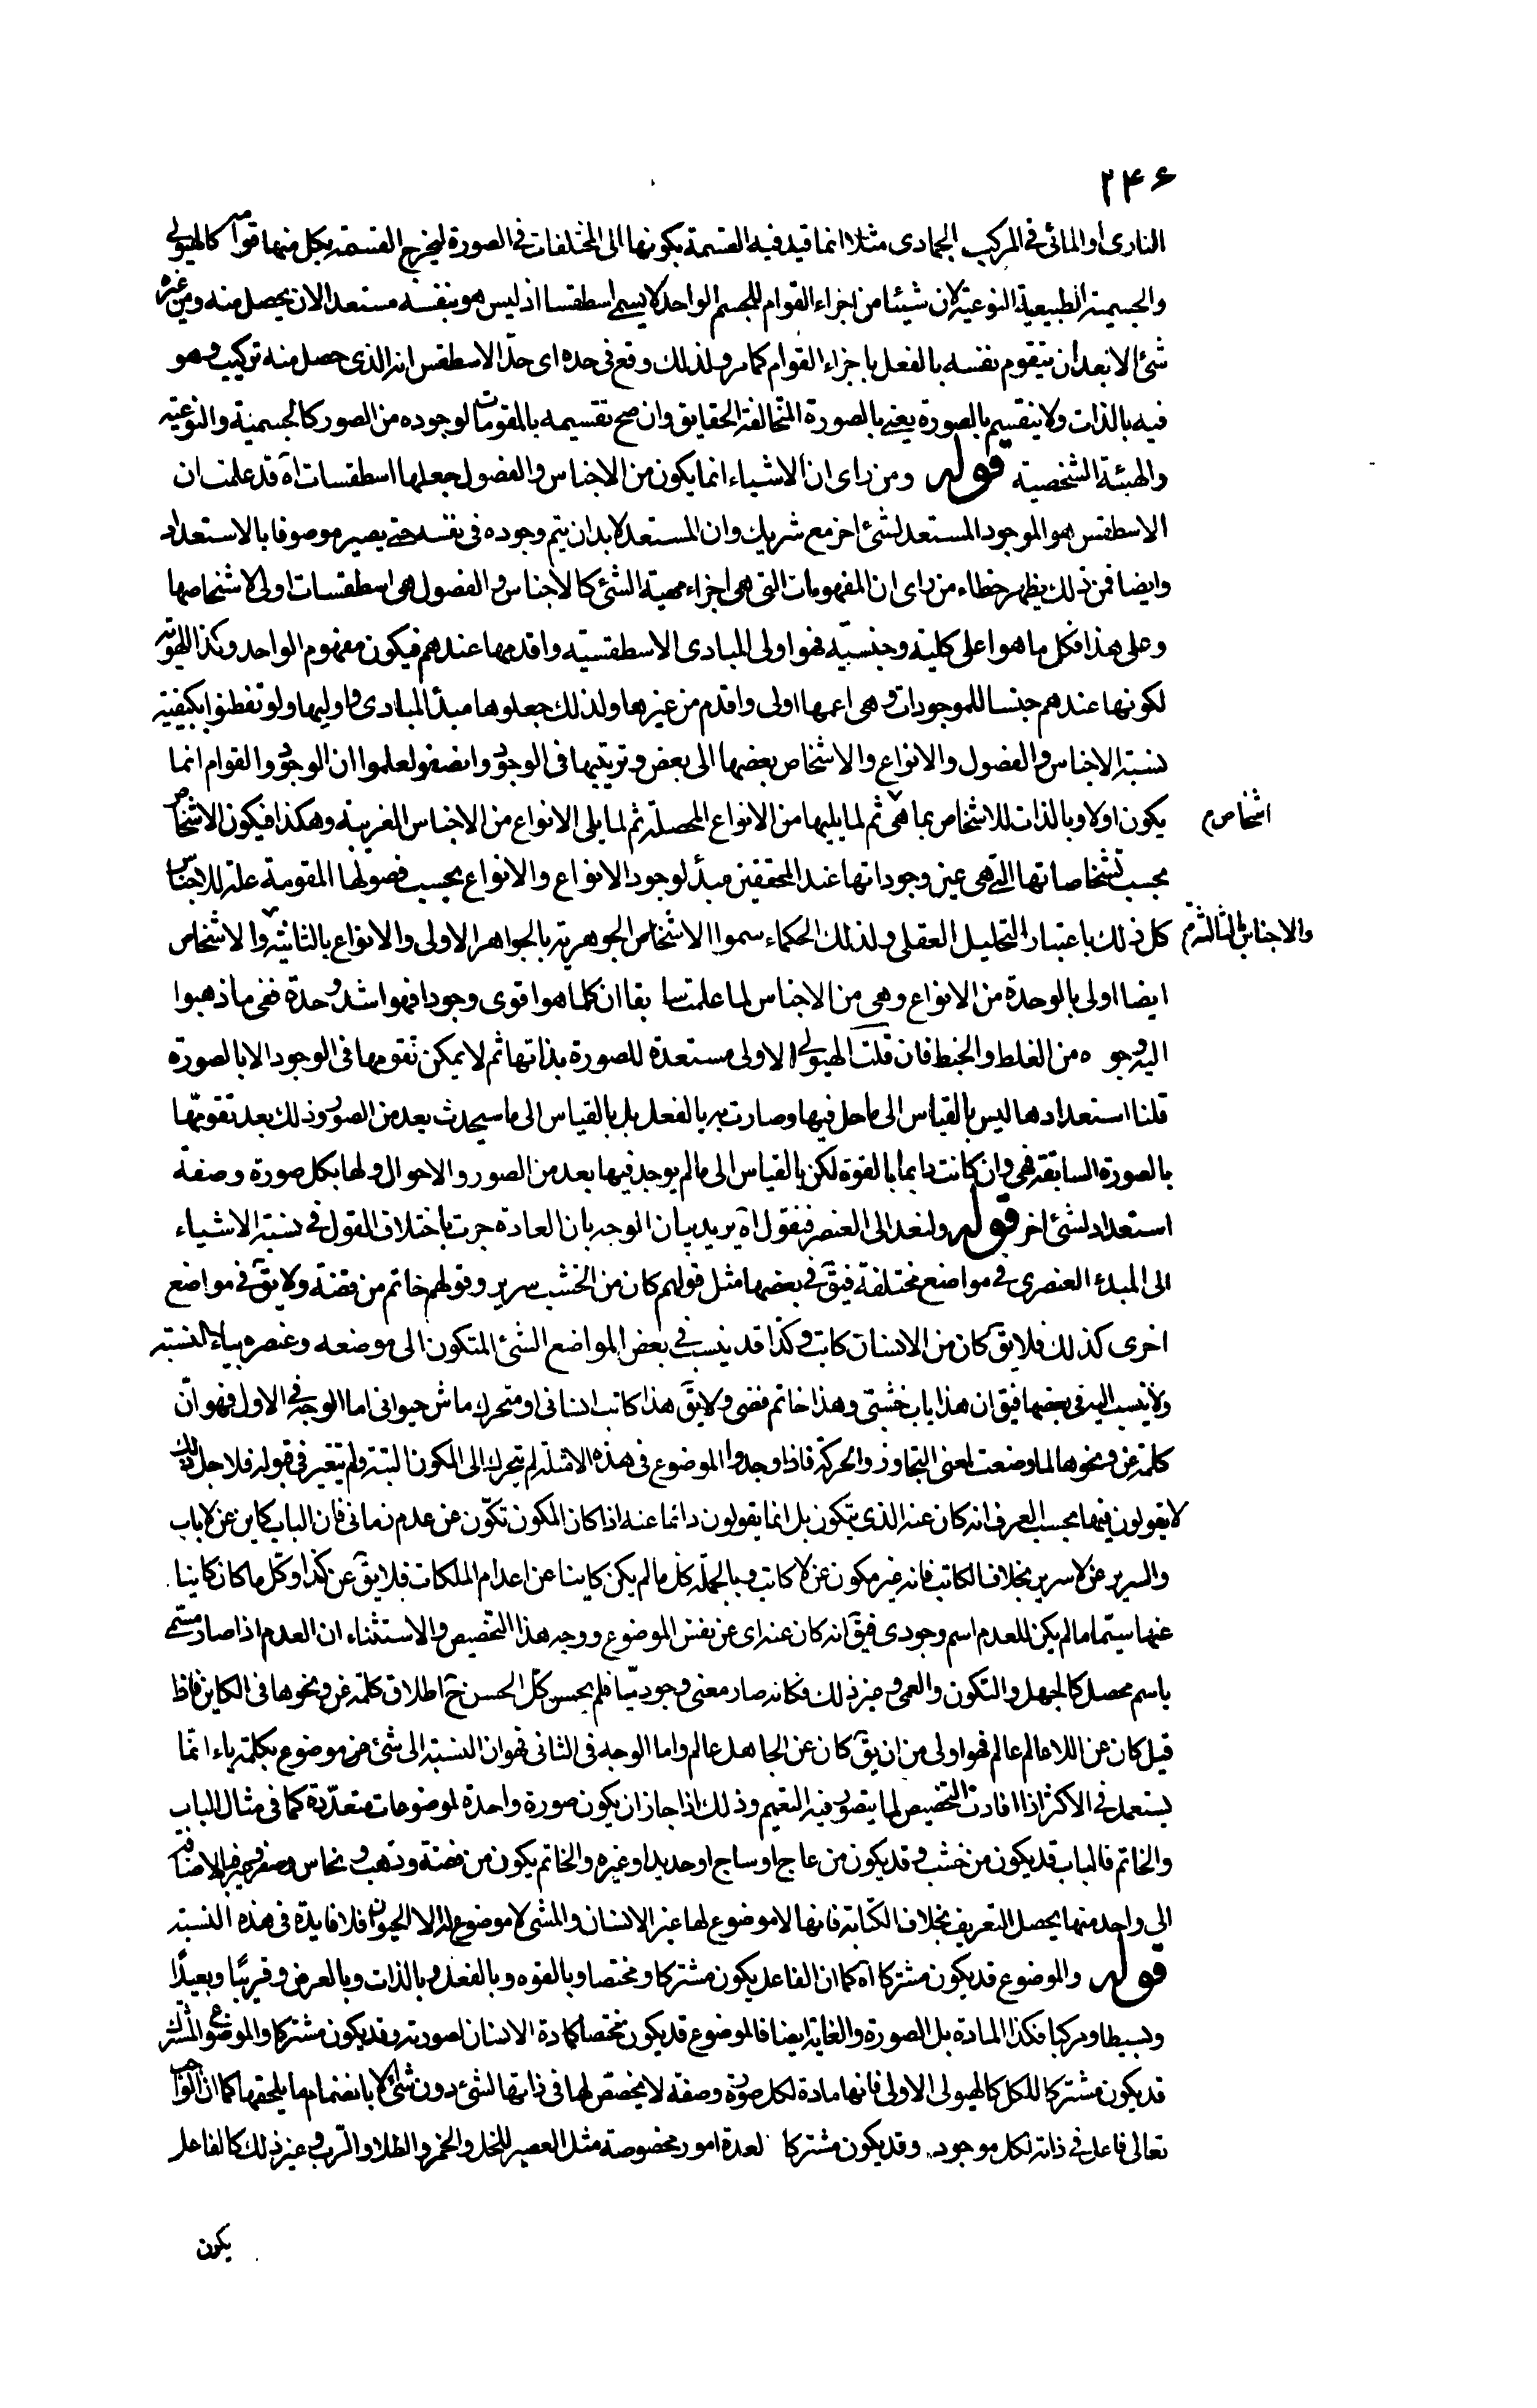 ۲۴۶
النارى او المائى فى المركب الجمادى مثلا انما قيد فيه القسمة بكونها الى المختلفات فى الصورة ليخرج القسمة بكل منها قوامه كالهيولى
والجسمية الطبيعية النوعية لان شيئا من اجزاء القوام للجسم الواحد لا يسمى اسطقسا اذ ليس هو بنفسه مستعدا لان يحصل منه ومن غيره
شئ الا بعد ان يتقوم نفسه بالفعل باجزاء القوام كما مر ولذلك وقع فى حده اى حدّ الاسطقس انه الذى حصل منه تركيب وهو
فيه بالذات ولا ينقسم بالصورة يعنى بالصورة المتخالفة الحقايق وان صح تقسيمه بالمقومات لوجوده من الصور كالجسمية والنوعية
والهيئة الشخصية قوله ومن راى ان الاشياء انما يكون من الاجناس والفصول جعلها اسطقسات آه قد علمت ان
الاسطقس هو الموجود المستعد لشئ اخر مع شريك وان المستعد لا بد ان يتم وجوده فى نفسه حتى يصير موصوفا بالاستعداد
وايضا فمن ذلك يظهر خطاء من راى ان المفهومات التى هى اجزاء مهية الشئ كالاجناس والفصول هى اسطقسات اولى لاشخاصها
وعلى هذا فكل ما هو اعلى كلية وجنسيّة فهو اولى المبادى الاسطقسية واقدمها عندهم فيكون مفهوم الواحد وكذا الهوية
لكونها عندهم جنسا للموجودات وهى اعمها اولى واقدم من غيرها ولذلك جعلوها مبدأ المبادى واوليها ولو تفطنوا بكيفية
نسبة الاجناس والفصول والانواع والاشخاص بعضها الى بعض وترتيبها فى الوجود وانصفوا لعلموا ان الوجود والقوام انما
يكون اولا وبالذات للاشخاص بما هى ثم لما يليها من الانواع المحصلة ثم لما يلى الانواع من الاجناس القريبة وهكذا فيكون الاشخاص
اشخاص م
بحسب تشخاصاتها التى هى عين وجوداتها عند المحققين مبدأ لوجود الانواع والانواع بحسب فصولها المقومة علة للاجناس
كل ذلك باعتبار التحليل العقلى ولذلك الحكماء سموا الاشخاص الجوهرية بالجواهر الاولى والانواع بالثانية والاشخاص
والاجناس بالثالثة م
ايضا اولى بالوحدة من الانواع وهى من الاجناس لما علمت سابقا ان كلما هو اقوى وجودا فهو اشد وحدة ففى ما ذهبوا
اليه وجوه من الغلط والخبط فان قلت الهيولى الاولى مستعدة للصورة بذاتها ثم لا يمكن تقومها فى الوجود الا بالصورة
قلنا استعدادها ليس بالقياس الى ما حل فيها وصارت به بالفعل بل بالقياس الى ما سيحدث بعد من الصور وذلك بعد تقومها
بالصورة السابقة فهى وان كانت دايما بالقوة لكن بالقياس الى ما لم يوجد فيها بعد من الصور والاحوال ولها بكل صورة وصفة
استعداد لشئ اخر قوله ولنعد الى العنصر فنقول آه يريد بيان الوجه بان العادة جرت باختلاف القول فى نسبة الاشياء
الى المبدء العنصرى فى مواضع مختلفة فيق فى بعضها مثل قولهم كان من الخشب سرير وقولهم خاتم من فضة ولا يق فى مواضع
اخرى كذلك فلا يق كان من الانسان كاتب وكذا قد ينسب فى بعض المواضع الشئ المتكون الى موضعه وعنصره بياء النسبة
ولا ينسب اليه فى بعضها فيق ان هذا باب خشبى وهذا خاتم فضى ولا يق هذا كاتب انسانى او متحرك ماش حيوانى اما الوجه فى الاول فهو انّ
كلمة عن ونحوها لما وضعت لمعنى التجاوز والحركة فاذا وجدوا الموضوع فى هذه الامثلة لم يتحرك الى المكون البتة ولم يتغير فى قبوله فلاجل ذلك
لا يقولون فيها بحسب العرف انه كان عنه الذى يتكون بل انما يقولون دائما عنه اذا كان المكون تكوّن عن عدم زمانى فان الباب كاين عن لا باب
والسرير عن لا سرير بخلاف الكاتب فانه غير مكون عن لا كاتب وبالجملة كل ما لم يكن كاينا عن اعدام الملكات فلا يق عن كذا وكل ما كان كاينا
عنها سيّما ما لم يكن للعدم اسم وجودى فيق انه كان عنه اى عن نفس الموضوع ووجه هذا التخصيص والاستثناء ان العدم اذا صار مسمى
باسم محصل كالجهل والسكون والعمى وغير ذلك فكانه صار معنى وجوديّا فلم يحسن كل الحسن ح اطلاق كلمة عن ونحوها فى الكاين فاذا
قيل كان عن اللاعالم عالم فهو اولى من ان يق كان عن الجاهل عالم واما الوجه فى الثانى فهو ان النسبة الى شئ من موضوع بكلمة ياء انما
يستعمل فى الاكثر اذا افادت التخصيص لما يتصور فيه التعميم وذلك اذا جاز ان يكون صورة واحدة لموضوعات متعدّدة كما فى مثال الباب
والخاتم فالباب قد يكون من خشب وقد يكون من عاج او ساج او حديد او غيره والخاتم يكون من فضة وذهب ونحاس وصفر وغيرها فبالاضافة
الى واحد منها يحصل التعريف بخلاف الكتابة فانها لا موضوع لها غير الانسان والمشى لا موضوع له الا الحيوان فلا فايدة فى هذه النسبة
قوله والموضوع قد يكون مشتركا آه كما ان الفاعل يكون مشتركا ومختصا وبالقوه وبالفعل وبالذات وبالعرض وقريبا وبعيدًا
وبسيطا ومركبا فكذا المادة بل الصورة والغاية ايضا فالموضوع قد يكون مختصا كمادة الانسان لصورته وقد يكون مشتركا والموضوع المشترك
قد يكون مشتركا للكل كالهيولى الاولى فانها مادة لكل صورة وصفة لا يخصّص لها فى ذاتها لشئ دون شئ الا بانضمام ما يلحقها كما ان الواجب
تعالى فاعل فى ذاته لكل موجود وقد يكون مشتركا لعدة امور مخصوصة مثل العصير للخل والخمر والطلا والرب وغير ذلك كالفاعل
يكون